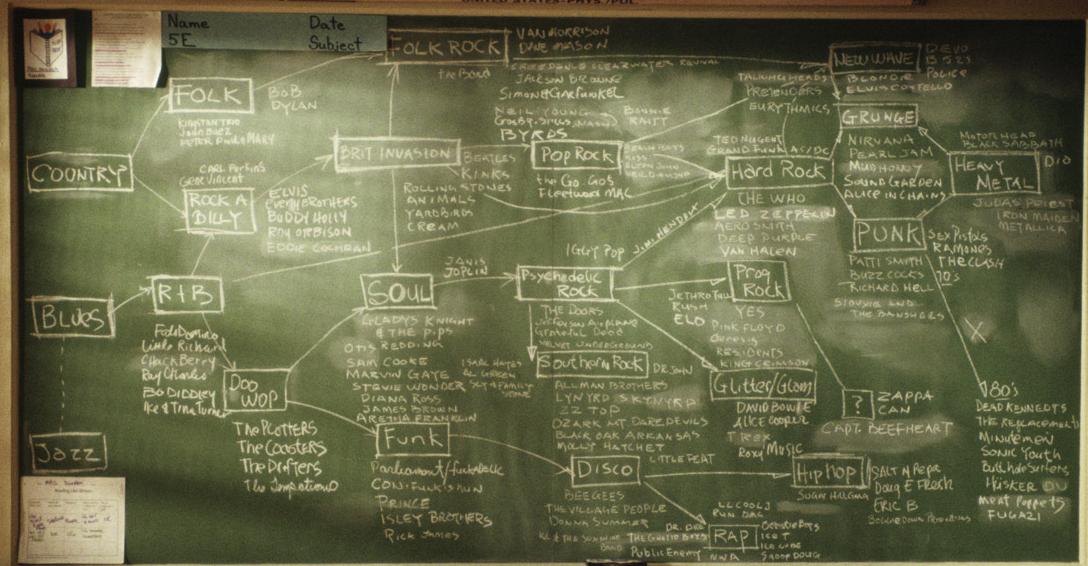 UNITED STATES-PHYS./POL.
Name
5E
Date
Subject
FOLK ROCK
VAN MORRISON
DAVE MASON
the Band
CREEDENCE CLEARWATER REVIVAL
JACKSON BROWNE
Simon & Garfunkel
NEIL YOUNG
BYRDS
BONNIE
RAITT
NEW WAVE
DEVO
B 52s
POLICE
BLONDIE
ELVIS COSTELLO
TALKING HEADS
PRETENDERS
EURYTHMICS
FOLK
BOB
DYLAN
KINGSTON TRIO
Joan Baez
PETER Paul & MARY
COUNTRY
CARL Perkins
Gene Vincent
ROCK A
BILLY
ELVIS
Everly BROTHERS
BUDDY HOLLY
ROY ORBISON
EDDIE COCHRAN
BRIT INVASION
BEATLES
KINKS
ROLLING STONES
ANIMALS
YARDBIRDS
CREAM
Pop Rock
the Go-Gos
Fleetwood MAC
BEACH BOYS
KISS
ELTON JOHN
NEIL DIAMOND
TED NUGENT
GRAND FUNK AC/DC
Hard Rock
THE WHO
LED ZEPPELIN
AEROSMITH
DEEP PURPLE
VAN HALEN
GRUNGE
NIRVANA
PEARL JAM
MUDHONEY
SOUND GARDEN
ALICE IN CHAINS
MOTORHEAD
BLACK SABBATH
HEAVY
METAL
DIO
JUDAS PRIEST
IRON MAIDEN
METALLICA
PUNK
SEX PISTOLS
RAMONES
THE CLASH
70's
PATTI SMITH
BUZZCOCKS
RICHARD HELL
SIOUXSIE AND
THE BANSHEES
X
Blues
R+B
Fats Domino
Little Richard
Chuck Berry
Ray Charles
BO DIDDLEY
Ike & Tina Turner
Doo
WOP
The PLOTTERS
The Coasters
The Drifters
The Temptations
SOUL
JANIS
JOPLIN
GLADYS KNIGHT
& THE PIPS
OTIS REDDING
SAM COOKE
MARVIN GAYE
STEVIE WONDER
DIANA ROSS
JAMES BROWN
ARETHA FRANKLIN
ISAAC HAYES
AL GREEN
SLY & FAMILY
STONE
IGGY POP
JIMI HENDRIX
Psychedelic
Rock
THE DOORS
Jefferson Airplane
Grateful Dead
VELVET UNDERGROUND
Southern Rock
DR. JOHN
ALLMAN BROTHERS
LYNYRD SKYNYRD
ZZ TOP
OZARK MT DAREDEVILS
BLACK OAK ARKANSAS
MOLLY HATCHET
LITTLE FEAT
Prog
Rock
JETHRO TULL
RUSH
ELO
YES
PINK FLOYD
Genesis
RESIDENTS
KING CRIMSON
Glitter/Glam
DAVID BOWIE
ALICE COOPER
T REX
Roxy MUSIC
?
ZAPPA
CAN
CAPT. BEEFHEART
Jazz
Funk
Parliament/Funkadelic
CON-FUNK-SHUN
PRINCE
ISLEY BROTHERS
Rick James
DISCO
BEEGEES
THE VILLAGE PEOPLE
DONNA SUMMER
KC & THE SUNSHINE
BAND
HIP HOP
SUGAR HILL GANG
SALT N PEPA
Doug E Fresh
ERIC B
BOOGIE DOWN PRODUCTIONS
LL COOL J
RUN DMC
DR. DRE
THE GHETTO BOYS
Public Enemy
NWA
RAP
BEASTIE BOYS
ICE T
ICE CUBE
SNOOP DOGG
'80's
DEAD KENNEDYS
THE REPLACEMENTS
MINUTEMEN
SONIC YOUTH
Butthole Surfers
HÜSKER DU
MEAT PUPPETS
FUGAZI